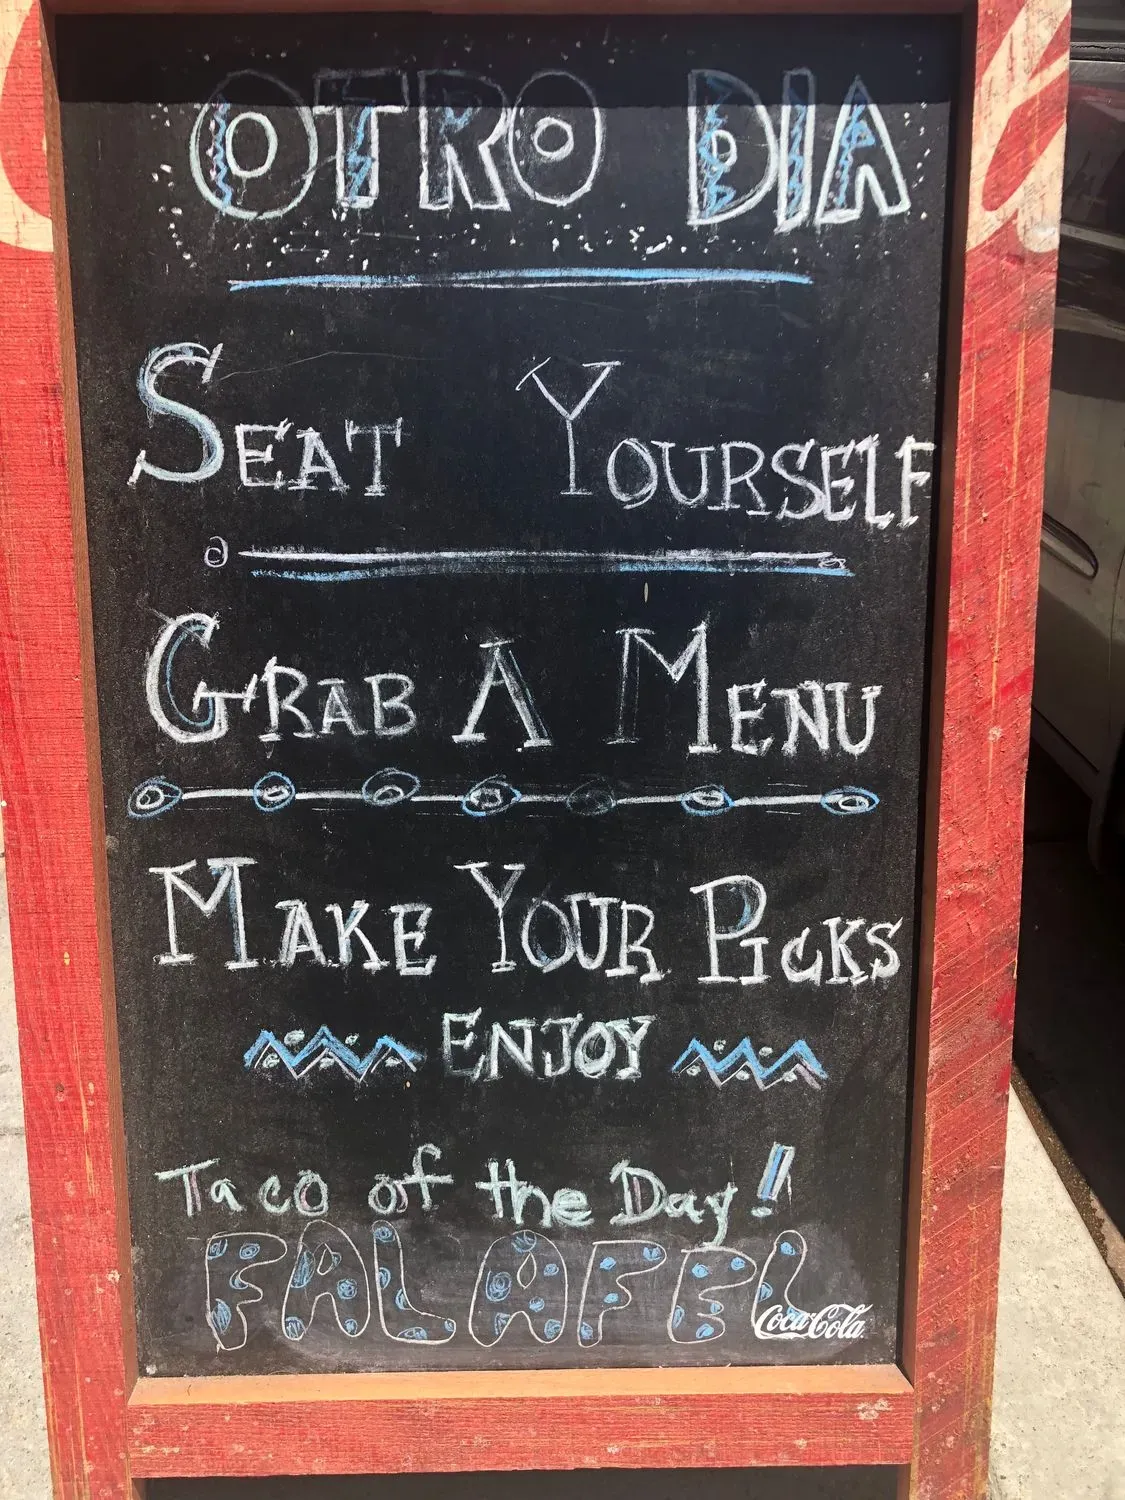 OTRO DIA
SEAT YOURSELF
GRAB A MENU
MAKE YOUR PICKS
ENJOY
Taco of the Day!
FALAFEL
Coca-Cola